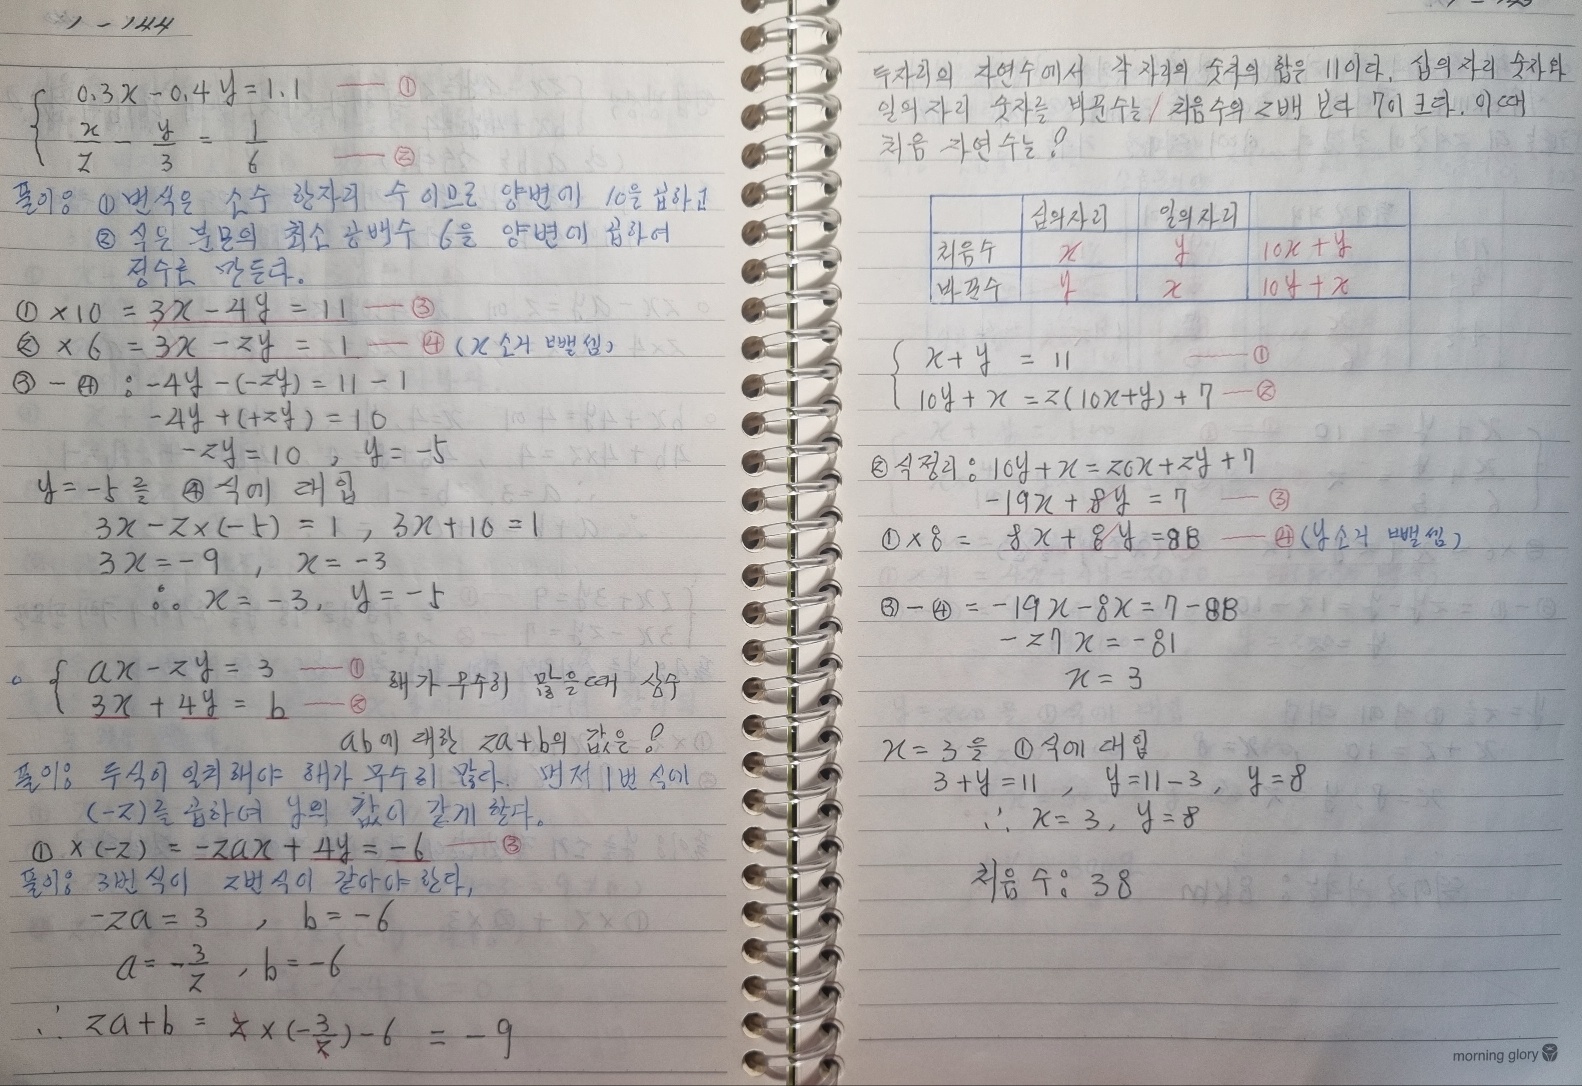 1-144
0.3x - 0.4y = 1.1 ―①
x/2 - y/3 = 1/6 ―②
풀이: ①번식은 소수 한자리 수 이므로 양변에 10을 곱하고
② 식은 분모의 최소 공배수 6을 양변에 곱하여
정수로 만든다.
① ×10 = 3x - 4y = 11 ―③
② ×6 = 3x - 2y = 1 ―④ (x 소거 뺄셈)
③ - ④ : -4y - (-2y) = 11 - 1
-4y + (+2y) = 10
-2y = 10 , y = -5
y = -5를 ④ 식에 대입
3x - 2×(-5) = 1 , 3x + 10 = 1
3x = -9 , x = -3
∴ x = -3, y = -5
ax - 2y = 3 ―① 해가 무수히 많을때 상수
3x + 4y = b ―②
ab에 대한 2a+b의 값은?
풀이: 두식이 일치해야 해가 무수히 많다. 먼저 1번 식에
(-2)를 곱하여 y의 값이 같게 한다.
① ×(-2) = -2ax + 4y = -6 ―③
풀이: 3번식이 2번식이 같아야 한다,
-2a = 3 , b = -6
a = -3/2 , b = -6
∴ 2a+b = 2×(-3/2) - 6 = -9
두자리의 자연수에서 각 자리의 숫자의 합은 11이다. 십의 자리 숫자와
일의 자리 숫자를 바꾼수는 / 처음수의 2배 보다 7이 크다. 이때
처음 자연수는?
십의자리 일의자리
처음수 x y 10x+y
바꾼수 y x 10y+x
x+y = 11 ―①
10y+x = 2(10x+y)+7 ―②
② 식정리: 10y+x = 20x+2y+7
-19x + 8y = 7 ―③
①×8 = 8x + 8y = 88 ―④ (y소거 뺄셈)
③-④ = -19x-8x = 7-88
-27x = -81
x = 3
x = 3을 ①식에 대입
3+y = 11 , y = 11-3, y = 8
∴ x = 3, y = 8
처음 수: 38
morning glory